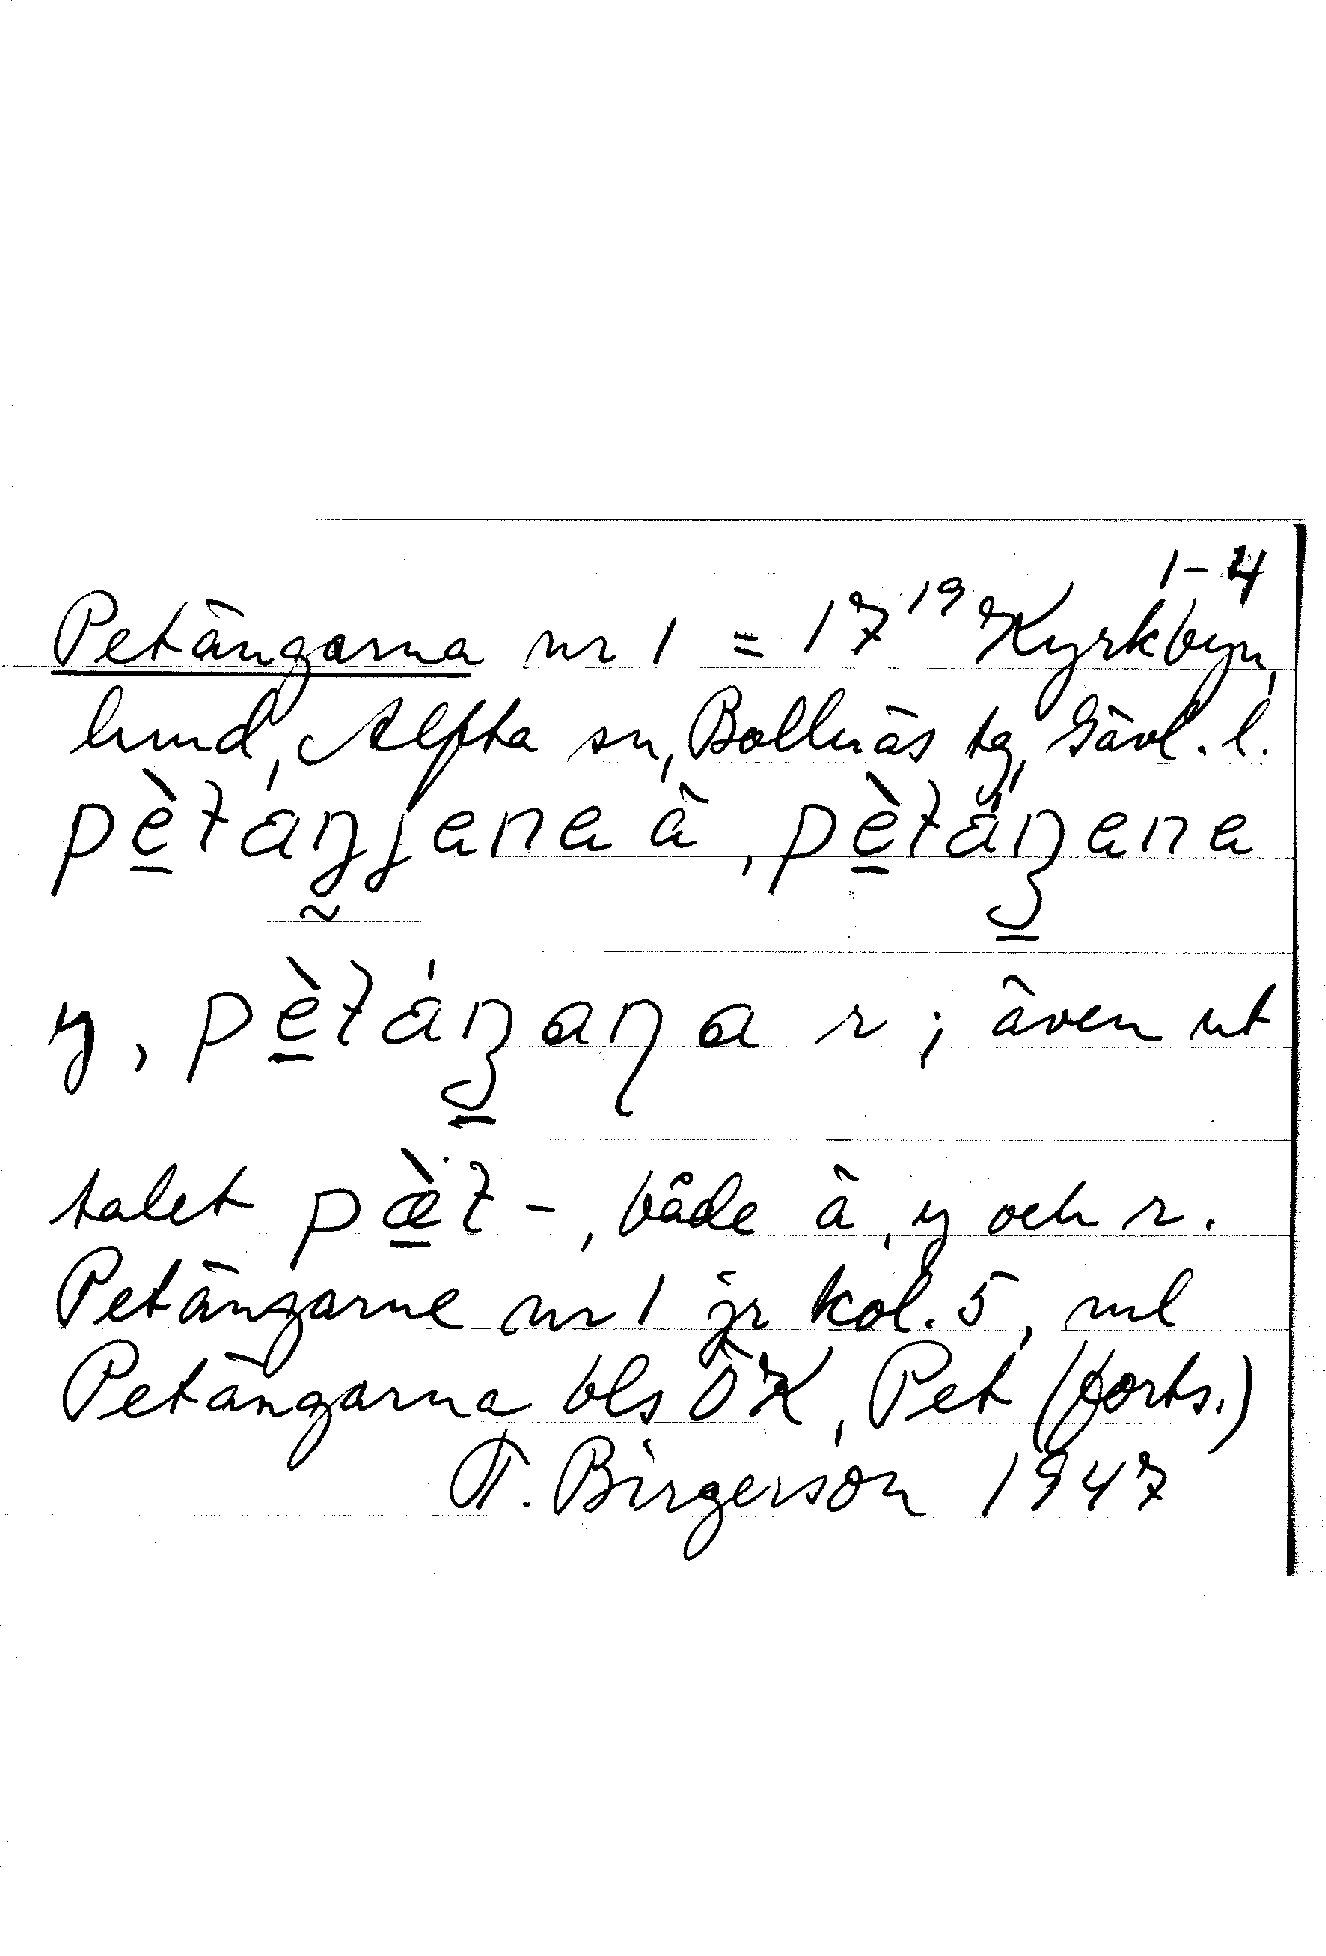 1-4
Petängarna nr 1 = 17¹⁹ Kyrkbyn,
lund, Alfta sn, Bollnäs tg, Gävl. l.
ä,
y, r; även ut
talet pæ̀t-, både ä, y och r.
Petängarne nr 1 jr kol. 5, ml
Petängarna bls ÖK, Pet (forts.)
T. Birgerson 1947